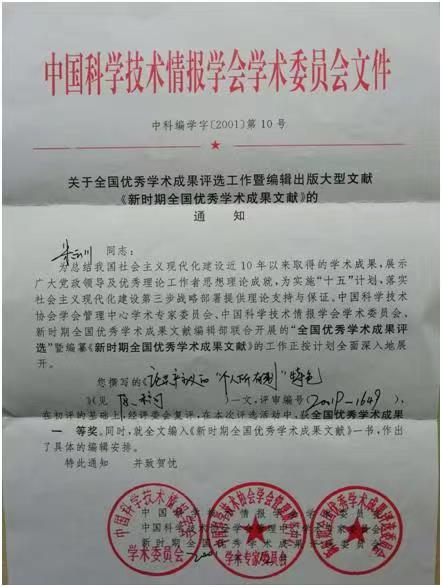 中国科学技术情报学会学术委员会文件
中科编学字[2001]第10号
关于全国优秀学术成果评选工作暨编辑出版大型文献
《新时期全国优秀学术成果文献》的
通知
同志：
为总结我国社会主义现代化建设近10年以来取得的学术成果，展示
广大党政领导及优秀理论工作者思想理论成就，为实施“十五”计划，落实
社会主义现代化建设第三步战略部署提供理论支持与保证。中国科学技术
协会学会管理中心学术专家委员会、中国科学技术情报学会学术委员会、
新时期全国优秀学术成果文献编辑部联合开展的“全国优秀学术成果评
选”暨编纂《新时期全国优秀学术成果文献》的工作正按计划全面深入地展
开。
您撰写的《论共产主义的“个人所有制”特色
》（见 一文，评审编号（20019-1649），
在初评的基础上，经评委会复评，在本次评选活动中，获全国优秀学术成果
一等奖。同时，就全文编入《新时期全国优秀学术成果文献》一书，作出
了具体的编辑安排。
特此通知 并致贺忱
中国科学技术情报学会学术委员会
中国科学技术协会学会管理中心学术专家委员会
新时期全国优秀学术成果文献评选委员会
2001
中国科学技术情报学会
学术委员会
学术专家委员会